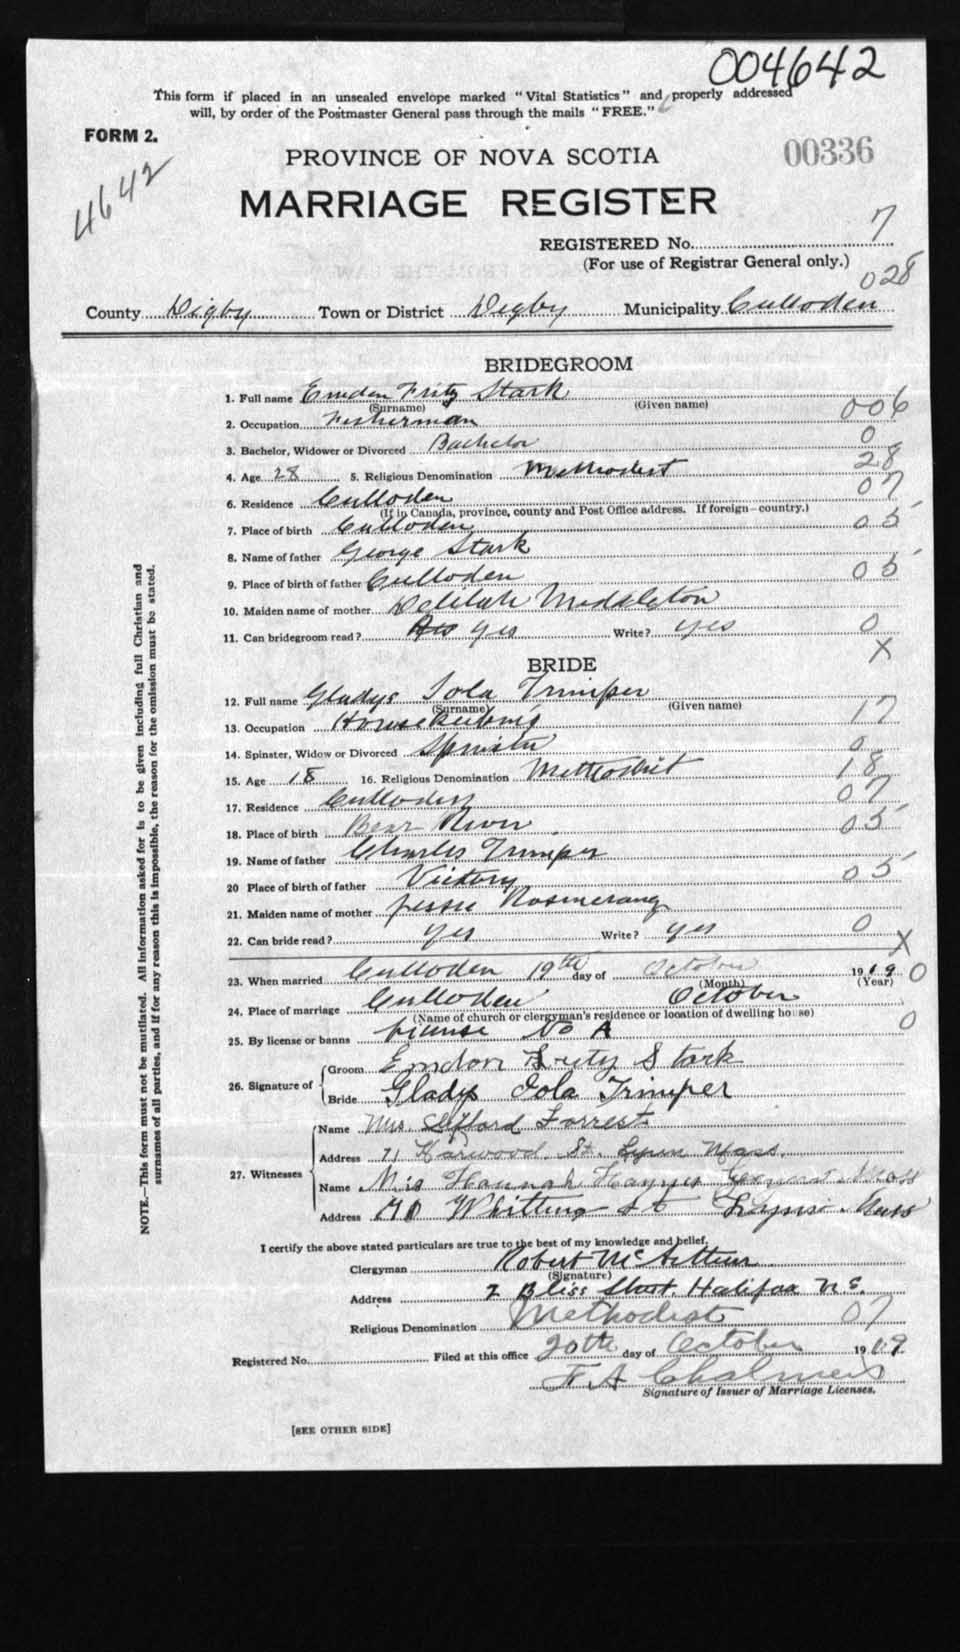 004642
This form if placed in an unsealed envelope marked "Vital Statistics" and properly addressed
will, by order of the Postmaster General pass through the mails "FREE."
FORM 2.
4642
PROVINCE OF NOVA SCOTIA
00336
MARRIAGE REGISTER
REGISTERED No. 7
(For use of Registrar General only.)
028
County Digby Town or District Digby Municipality Culloden
BRIDEGROOM
1. Full name Emdon Fritz Stark
(Surname) (Given name)
2. Occupation Fisherman 006
3. Bachelor, Widower or Divorced Bachelor 0
4. Age 28 5. Religious Denomination Methodist 28
6. Residence Culloden 07
(If in Canada, province, county and Post Office address. If foreign—country.)
7. Place of birth Culloden 05
8. Name of father George Stark
9. Place of birth of father Culloden 05
10. Maiden name of mother Delilah Middleton
11. Can bridegroom read? yes Write? yes 0
X
BRIDE
12. Full name Gladys Iola Trimper
(Surname) (Given name)
13. Occupation Housekeeping 17
14. Spinster, Widow or Divorced Spinster 0
15. Age 18 16. Religious Denomination Methodist 18
17. Residence Culloden 07
18. Place of birth Bear River 05
19. Name of father Charles Trimper
20 Place of birth of father Victory 05
21. Maiden name of mother Jessie
22. Can bride read? yes Write? yes 0
X
23. When married Culloden 19th day of October 1919 0
(Month) (Year)
24. Place of marriage Culloden October
(Name of church or clergyman's residence or location of dwelling house)
25. By license or banns license No A 0
26. Signature of Groom Emdon Stark
Bride Gladys Iola Trimper
27. Witnesses
Name Mrs. Forrest
Address 71 Harwood St. Lynn Mass.
Name Hannah Haynes Mass
Address Whitting St Mass
I certify the above stated particulars are true to the best of my knowledge and belief.
Clergyman Robert McArthur
(Signature)
Address 2 Bliss Street, Halifax N.S.
Religious Denomination Methodist 07
Registered No. Filed at this office 20th day of October 1919
F A Chalmers
Signature of Issuer of Marriage Licenses.
[SEE OTHER SIDE]
NOTE.—This form must not be mutilated. All information asked for is to be given including full Christian and
surnames of all parties, and if for any reason this is impossible, the reason for the omission must be stated.